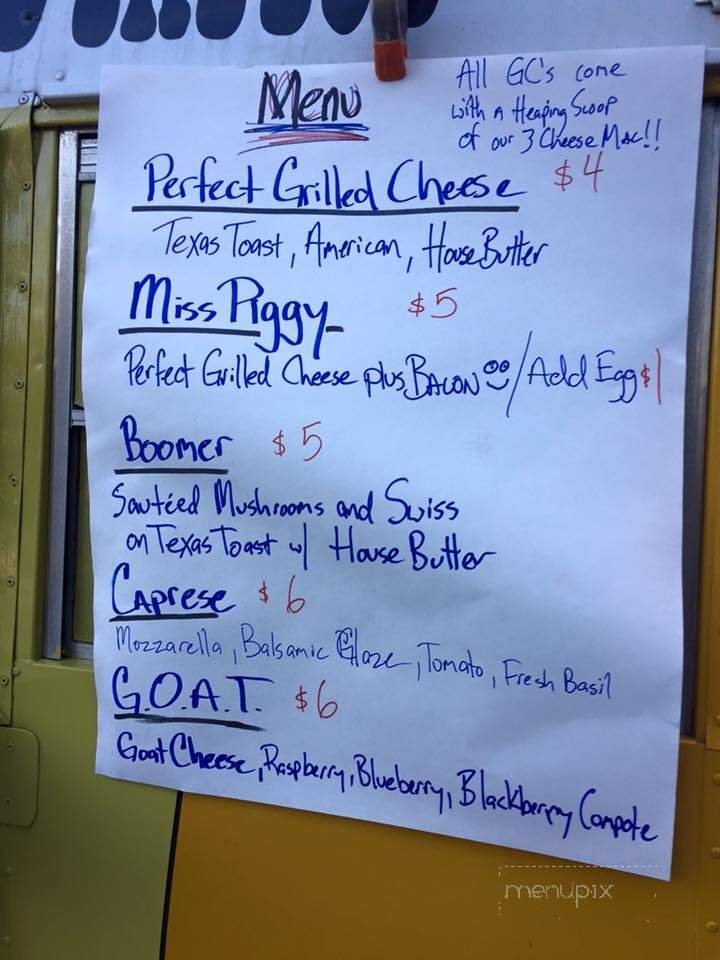 Menu
All GC's come
with a Heaping Scoop
of our 3 Cheese Mac!!
Perfect Grilled Cheese $4
Texas Toast, American, House Butter
Miss Piggy $5
Perfect Grilled Cheese plus BACON / Add Egg $1
Boomer $5
Sautéed Mushrooms and Swiss
on Texas Toast w/ House Butter
Caprese $6
Mozzarella, Balsamic Glaze, Tomato, Fresh Basil
G.O.A.T. $6
Goat Cheese, Raspberry, Blueberry, Blackberry Compote
menupix